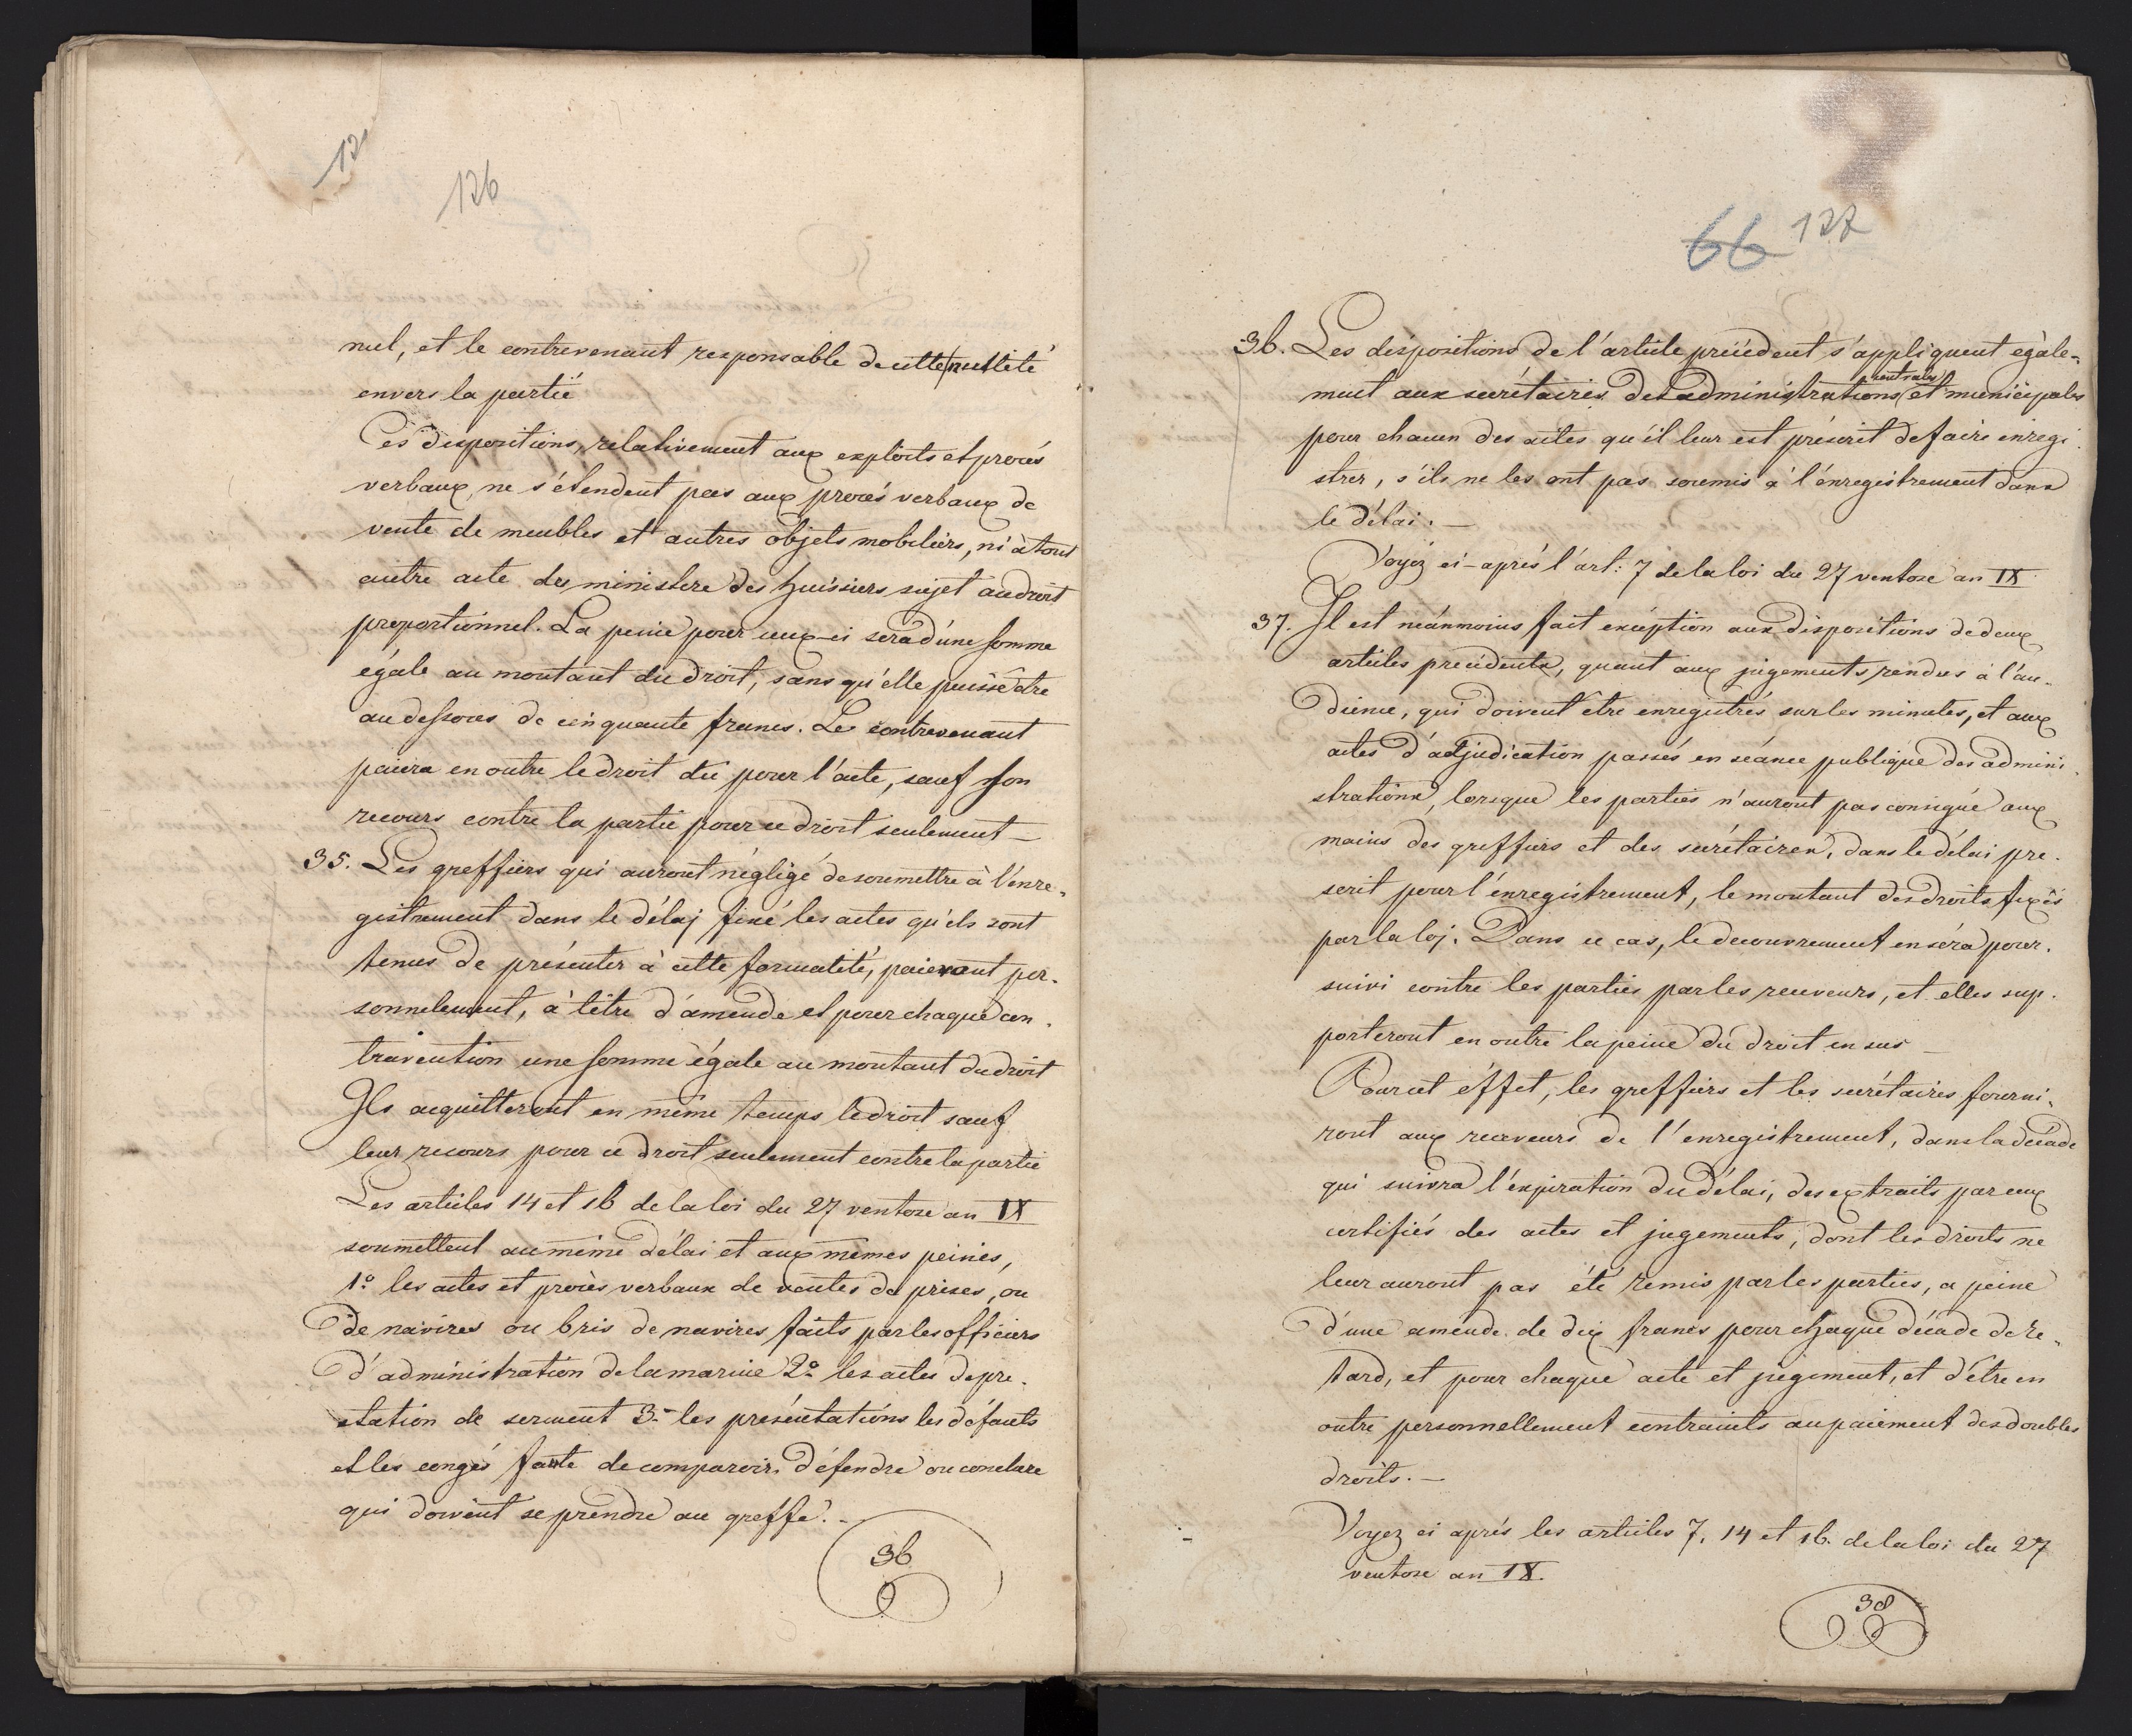 12
126
nul, et le contrevenant responsable de cette nullité
envers la partie
Ces dispositions, relativement aux exploits et procés
verbaux, ne s'étendent pas aux procés verbaux de
vente de meubles et autres objets mobiliers, ni à tout
autre acte du ministere des huissiers sujet au droit
proportionnel. La peine pour ceux-ci sera d'une somme
égale au montant du droit, sans qu'elle puisse être
au dessous de cinquante francs. Le contrevenant
paiera en outre le droit dû pour l'acte, sauf son
recours contre la partie pour ce droit seulement —
35. Les greffiers qui auront négligé de soumettre à l'enre-
gistrement dans le délaj fixé les actes qu'ils sont
tenus de présenter à cette formalité, paieront per-
sonnelement, à titre d'amende et pour chaque con-
travention une somme égale au montant du droit
Ils acquitteront en même temps le droit sauf
leur recours pour ce droit seulement contre la partie
Les articles 14 et 16 de la loi du 27 ventose an IX
soumettent au même délai et aux mêmes peines,
1.º les actes et procès verbaux de ventes de prises, ou
de navires ou bris de navires faits par les officiers
d'administration de la marine 2.º les actes de pre-
station de serment 3.º les présentations les défauts
et les congés faute de comparoir, défendre ou conclure
qui doivent se prendre au greffe. -
36
66 127
36. Les dispositions de l'article précédent s'appliquent egale-
centrales
ment aux secrétaires des administrations et municipales
pour chacun des actes qu'il leur est préscrit de faire enregi-
strer, s'ils ne les ont pas soumis à l'enregistrement dans
le délai. —
Voyéz ci-aprés l'art: 7 de la loi du 27 ventose an IX
37. Il est néanmoins fait exception aux dispositions de deux
articles précédents, quant aux jugements rendus à l'au-
dience, qui doivent être enregistrés sur les minutes, et aux
actes d'adjudication passés en séance publique des admini-
strations, lorsque les parties n'auront pas consigné aux
mains des greffiers et des secrétaires, dans le délai pre-
scrit pour l'enregistrement, le montant des droits fixés
par la loj. Dans ce cas, le decouvrement en sera pour-
suivi contre les parties par les receveurs, et elles sup-
porteront en outre la peine du droit en sus —
Pour cet éffet, les greffiers et les secrétaires fourni-
ront aux receveurs de l'enregistrement, dans la décade
qui suivra l'expiration du délai, des extraits par eux
certifiés des actes et jugements, dont les droits ne
leur auront pas été remis par les parties, a peine
d'une amende de dix francs pour chaque décade de re-
tard, et pour chaque acte et jugement, et d'être en
outre personnellement contraints au paiement des doubles
droits. —
Voyez ci aprés les articles 7, 14 et 16. de la loi du 27
ventose an IX.
38